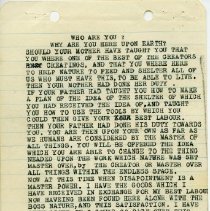 WHO ARE YOU ?
WHY ARE YOU HERE UPON EARTH?
SHOULD YOUR MOTHER HAVE TAUGHT YOU THAT
YOU WHERE ONE OF THE BEST OF THE CREATORS
CREATIONS, AND THAT YOU WHERE HERE
TO HELP NATURE TO FEED AND SHELTER ALL OF
US WHO MUST HAVE THIS, TO BE ABLE TO LIVE.
THEN YOUR MOTHER HAD DONE HER DUTY
IF YOUR FATHER HAD TAUGHT YOU HOW TO MAKE
A PLAN OF THE IDEA OF THE SHELTER OF WHICH
YOU HAD RECEIVED THE IDEA OF, AND TAUGHT
YOU HOW TO USE THE TOOLS BY WHICH YOU
COULD THEN GIVE YOUR BEST LABOR.
THEN YOUR FATHER HAD DONE HIS DUTY TOWARDS
YOU, YOU ARE THEN UPON YOUR OWN AS FAR AS
WE HUMANS ARE CONSIDERED BY THE MASTER OF
ALL THINGS, YOU WILL BE OFFERED THE IDEA
WHICH YOU ARE ABLE TO CHANGE TO THE THING
NEEDED UPON THE WORK WHICH NATURE HAS SET
MASTER OVER, BY THE CREATOR OR MASTER OVER
ALL THINGS WITHIN THE ENDLESS SPACE.
NOW AT THIS TIME WHEN DISAPOINTMENT IS A
MASTER POWER, I HAVE THE GOODS WHICH I
HAVE RECEIVED IN EXCHANGE FOR MY BEST LABOR
NOW HAVEING BEEN FOUND HERE ALONG WITH THE
BOSS NATURE, AND THE SATISFACTION. I HAVE